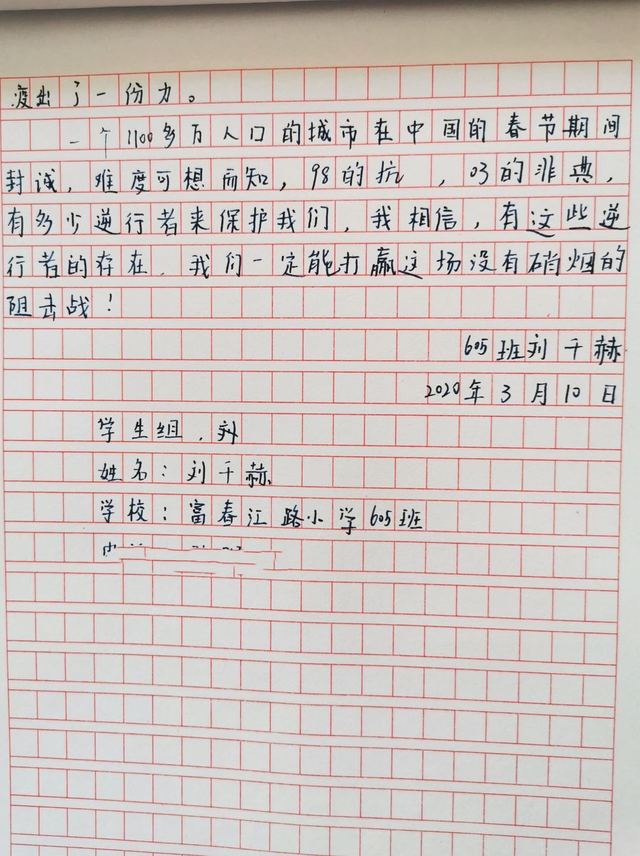 疫出了一份力。
一个1100多万人口的城市在中国的春节期间
封城，难度可想而知，98的抗，03的非典，
有多少逆行者来保护我们，我相信，有这些逆
行者的存在，我们一定能打赢这场没有硝烟的
阻击战！
605班刘千赫
2020年3月10日
学生组，刘
姓名：刘千赫
学校：富春江路小学605班